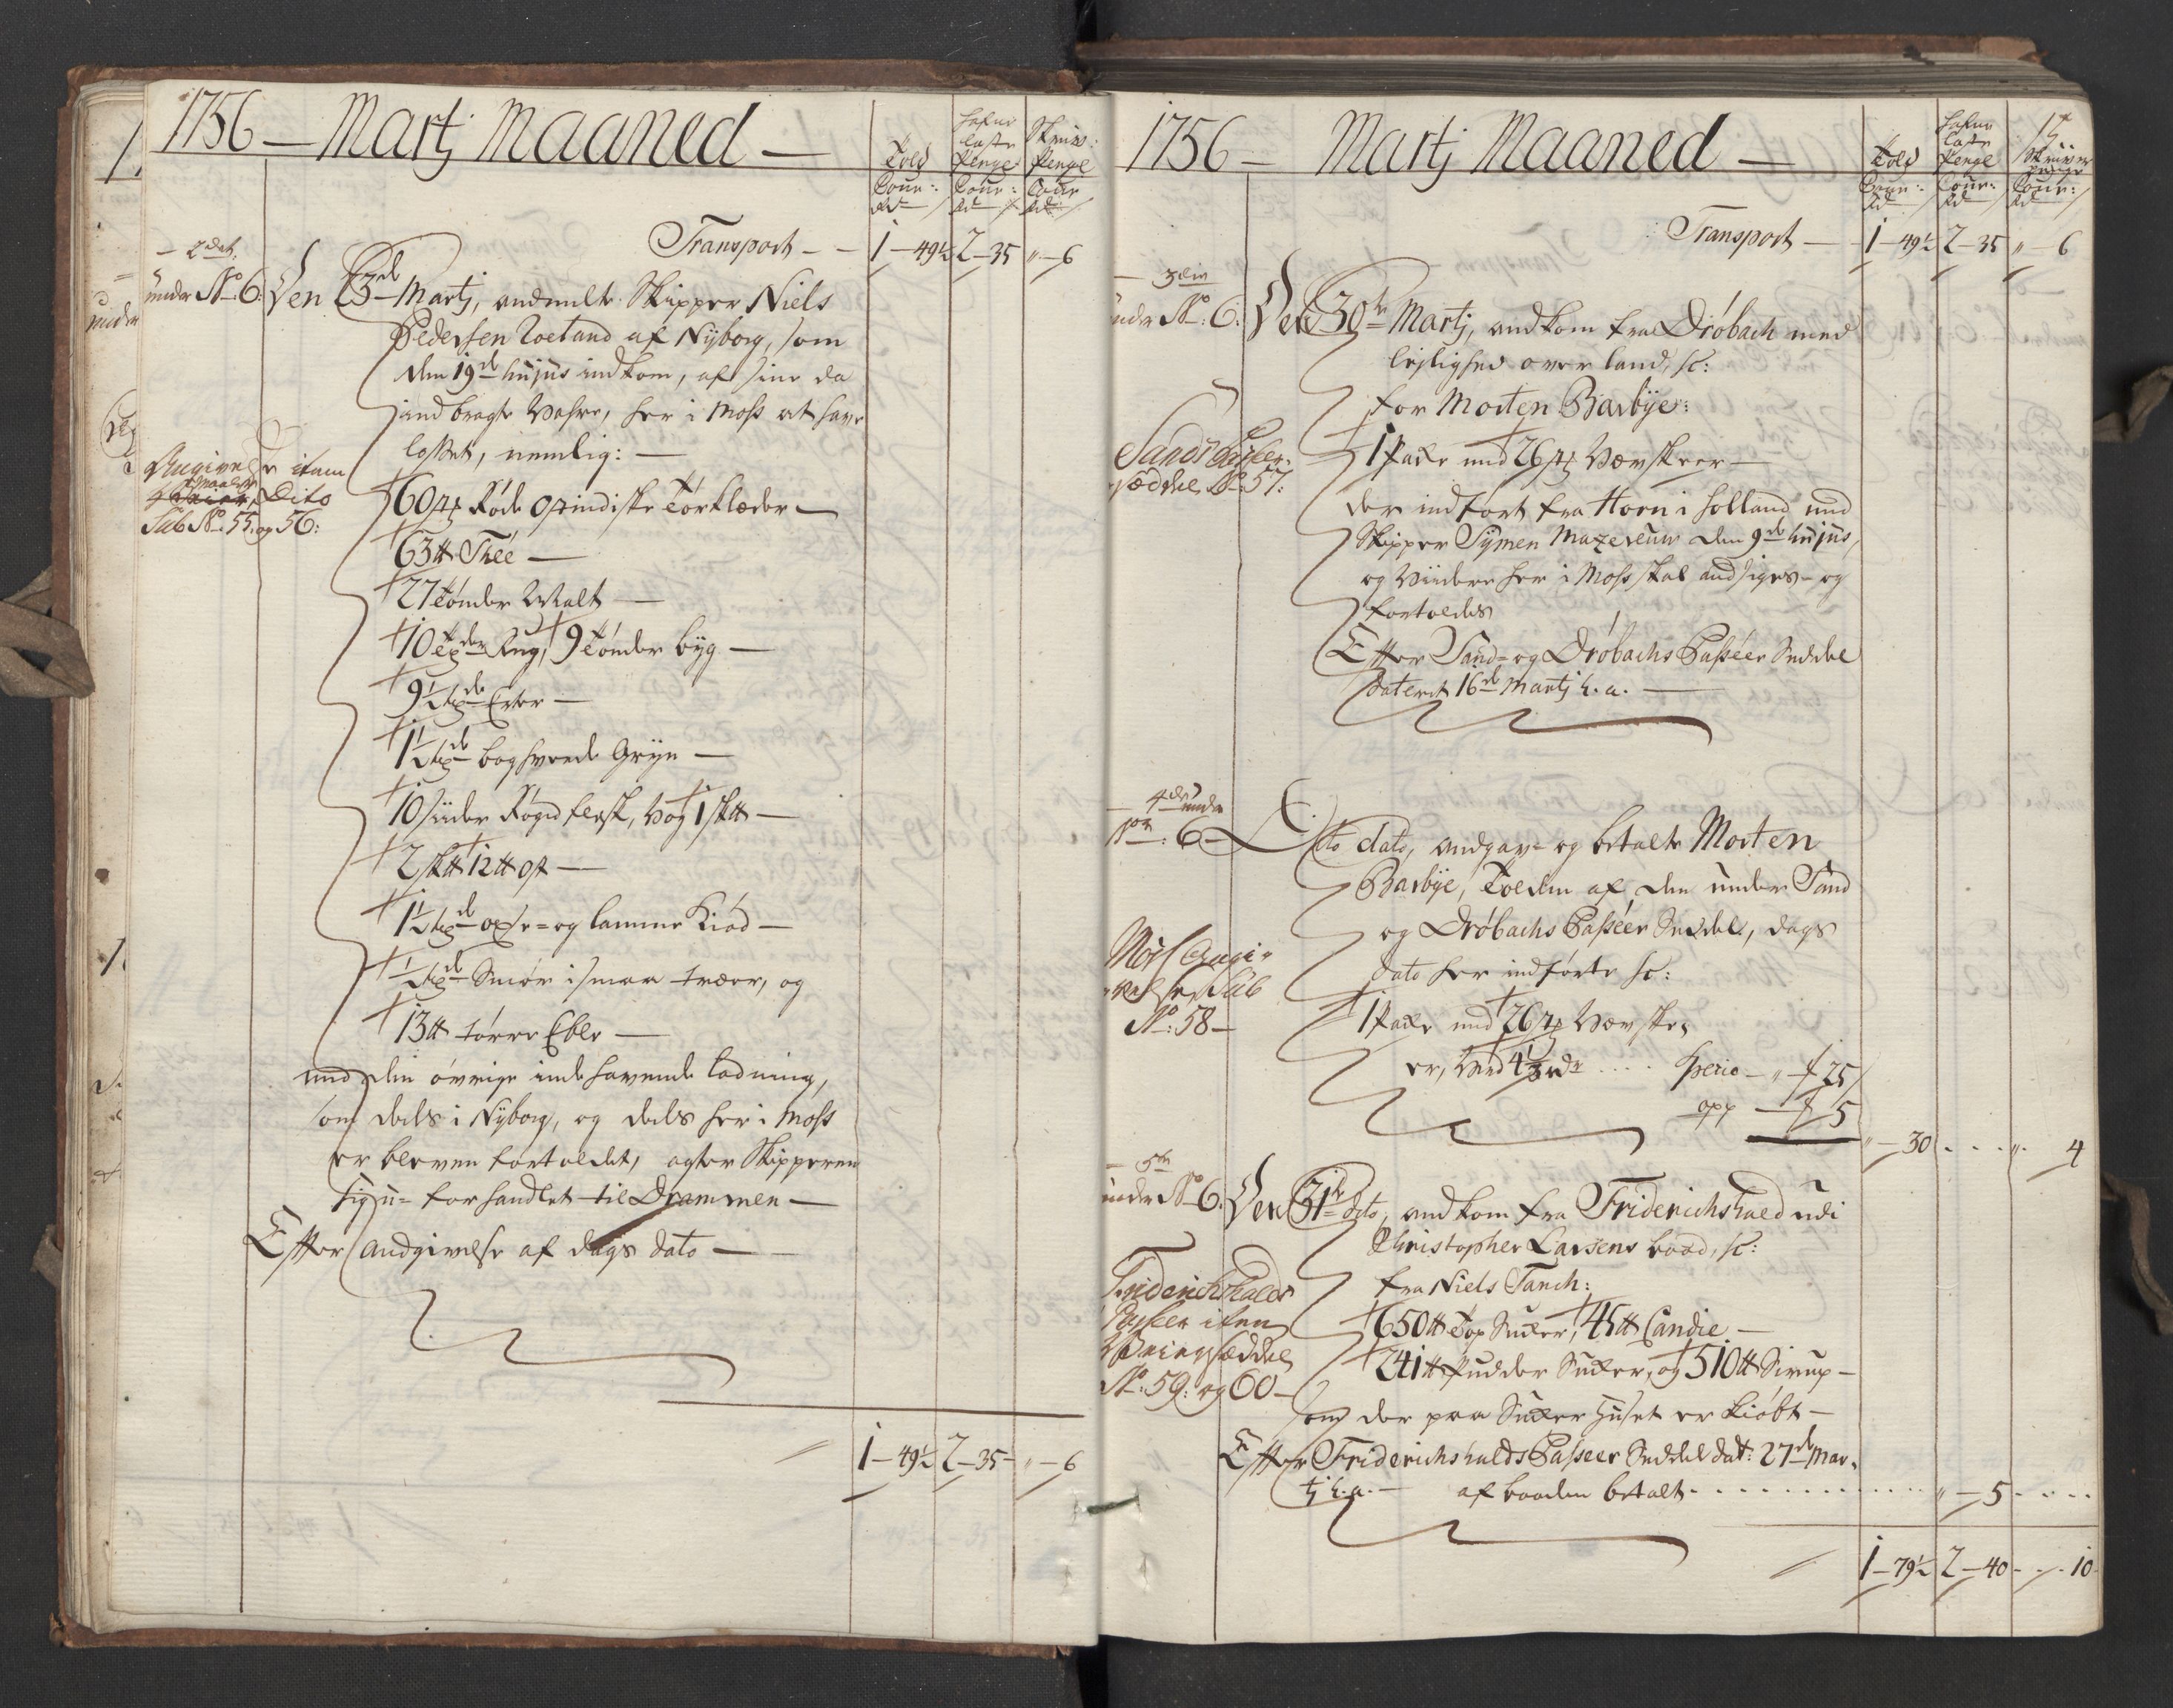 1756 — Martj Maaned —
Told
Cour:
Rd
Hafne
Laste
Penge
Cour:
Rd
Skriv:
Penge
Cour
Rd
Transport — 1 — 49½ 2 — 35 " — 6
— 2det
under No. 6: Den 23de Martj, anmelte Skipper Niels
Pedersen af Nyborg, som
den 19de hujus indkom, af sine da
ind bragte Vahre, her i Moss at have
losset, nemlig: —
Angivelse item
Dito
Sub No. 55: og 56:
60 st Røde ostindiske Tørklæder —
63 ℔ Thee —
27 Tønder Malt —
10 Tønder Rug, 9 Tønder byg —
9½ tde Erter —
1½ tde boghvede Gryn —
10 sider Røget flesk, Vog 1 sk℔ —
2 sk℔ 12 ℔ ost —
1½ tde oxe- og lamme Kiød —
½ tde Smør i smaa træer, og
13 ℔ tørre Eble —
med den øvrige inde havende ladning,
som deels i Nyborg, og deels her i Moss
er bleven fortoldet, agter Skipperen
sig u-forhandlet til Drammen —
Efter Andgivelse af dags dato —
1 — 49½ 2 — 35 " — 6
1756 — Martj Maaned —
Told
Cour:
Rd
Hafne
Laste
Penge
Cour:
Rd
17
Skriver
penge
Cour:
Rd
Transport — 1 — 49½ 2 — 35 " — 6
— 3die
under No. 6: Den 30te Martj, andkom fra Drøbach med
lejlighed over land, sc:
for Morten Barbye:
Sands Passeer
Sæddel No. 57:
1 Pakke med 26 st Vævskeer —
der indført fra Horn i Holland med
Skipper Symen den 9de hujus,
og Viidere her i Moss skal andsiges- og
fortoldes
Efter Sand- og Drøbachs Passéer Seddel
dateret 16de Martj h. a. —
— 4de under
No: 6 — Dito dato, andgav- og betalte Morten
Barbye, Tolden af den under Sand
og Drøbachs Passéer Seddel, dags
dato her indførte sc:
Moss Angi-
velse, Sub
No: 58 —
1 Pakke med 26 st Vævske-
er, Værd 4⅓ rdr .... Specie — " — 25
opp — 5
" — 30 . . . " . 4
— 5te
under No 6. Den 31te dito, andkom fra Friderichshald udi
Christopher Larsens baad, sc:
fra Niels Tanch:
Friderichshalds
Passeer item
No: 59: og 60 —
650 ℔ Top Sucker, 45 ℔ Candie —
241 ℔ Pudder Sucker, og 510 ℔ Sirup —
som der paa Sucker Huset er kiøbt —
Efter Friderichshalds Passeer Seddel dat: 27de Mar-
tj h. a. — af baaden betalt . . . . . . . " — 5 . . . .
1 — 79½ 2 — 40 . . . 10